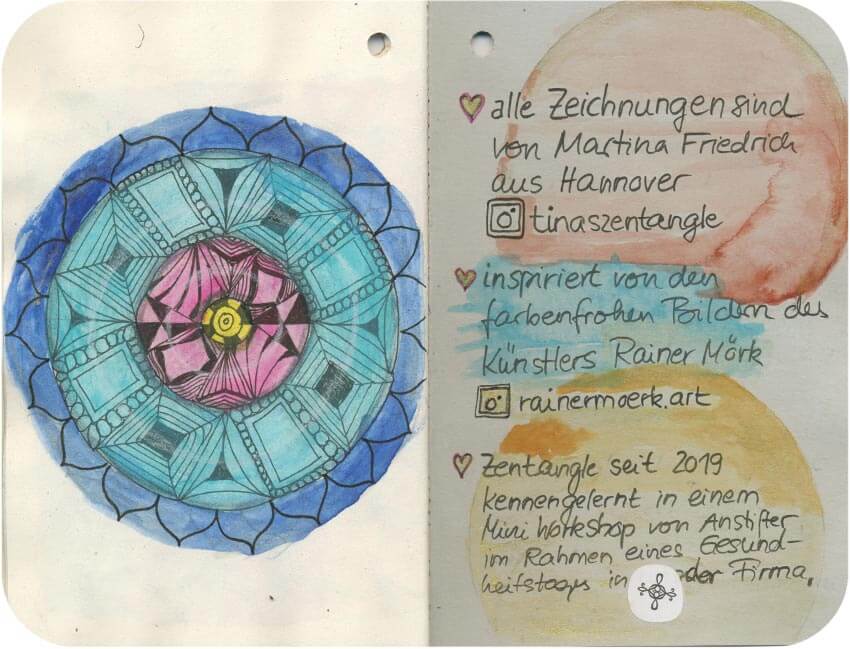 alle Zeichnungen sind
von Martina Friedrich
aus Hannover
tinaszentangle
inspiriert von den
farbenfrohen Bildern des
Künstlers Rainer Mörk
rainermoerk.art
Zentangle seit 2019
kennengelernt in einem
Mini Workshop von Anstifter
im Rahmen eines Gesund-
heitstags in der Firma.